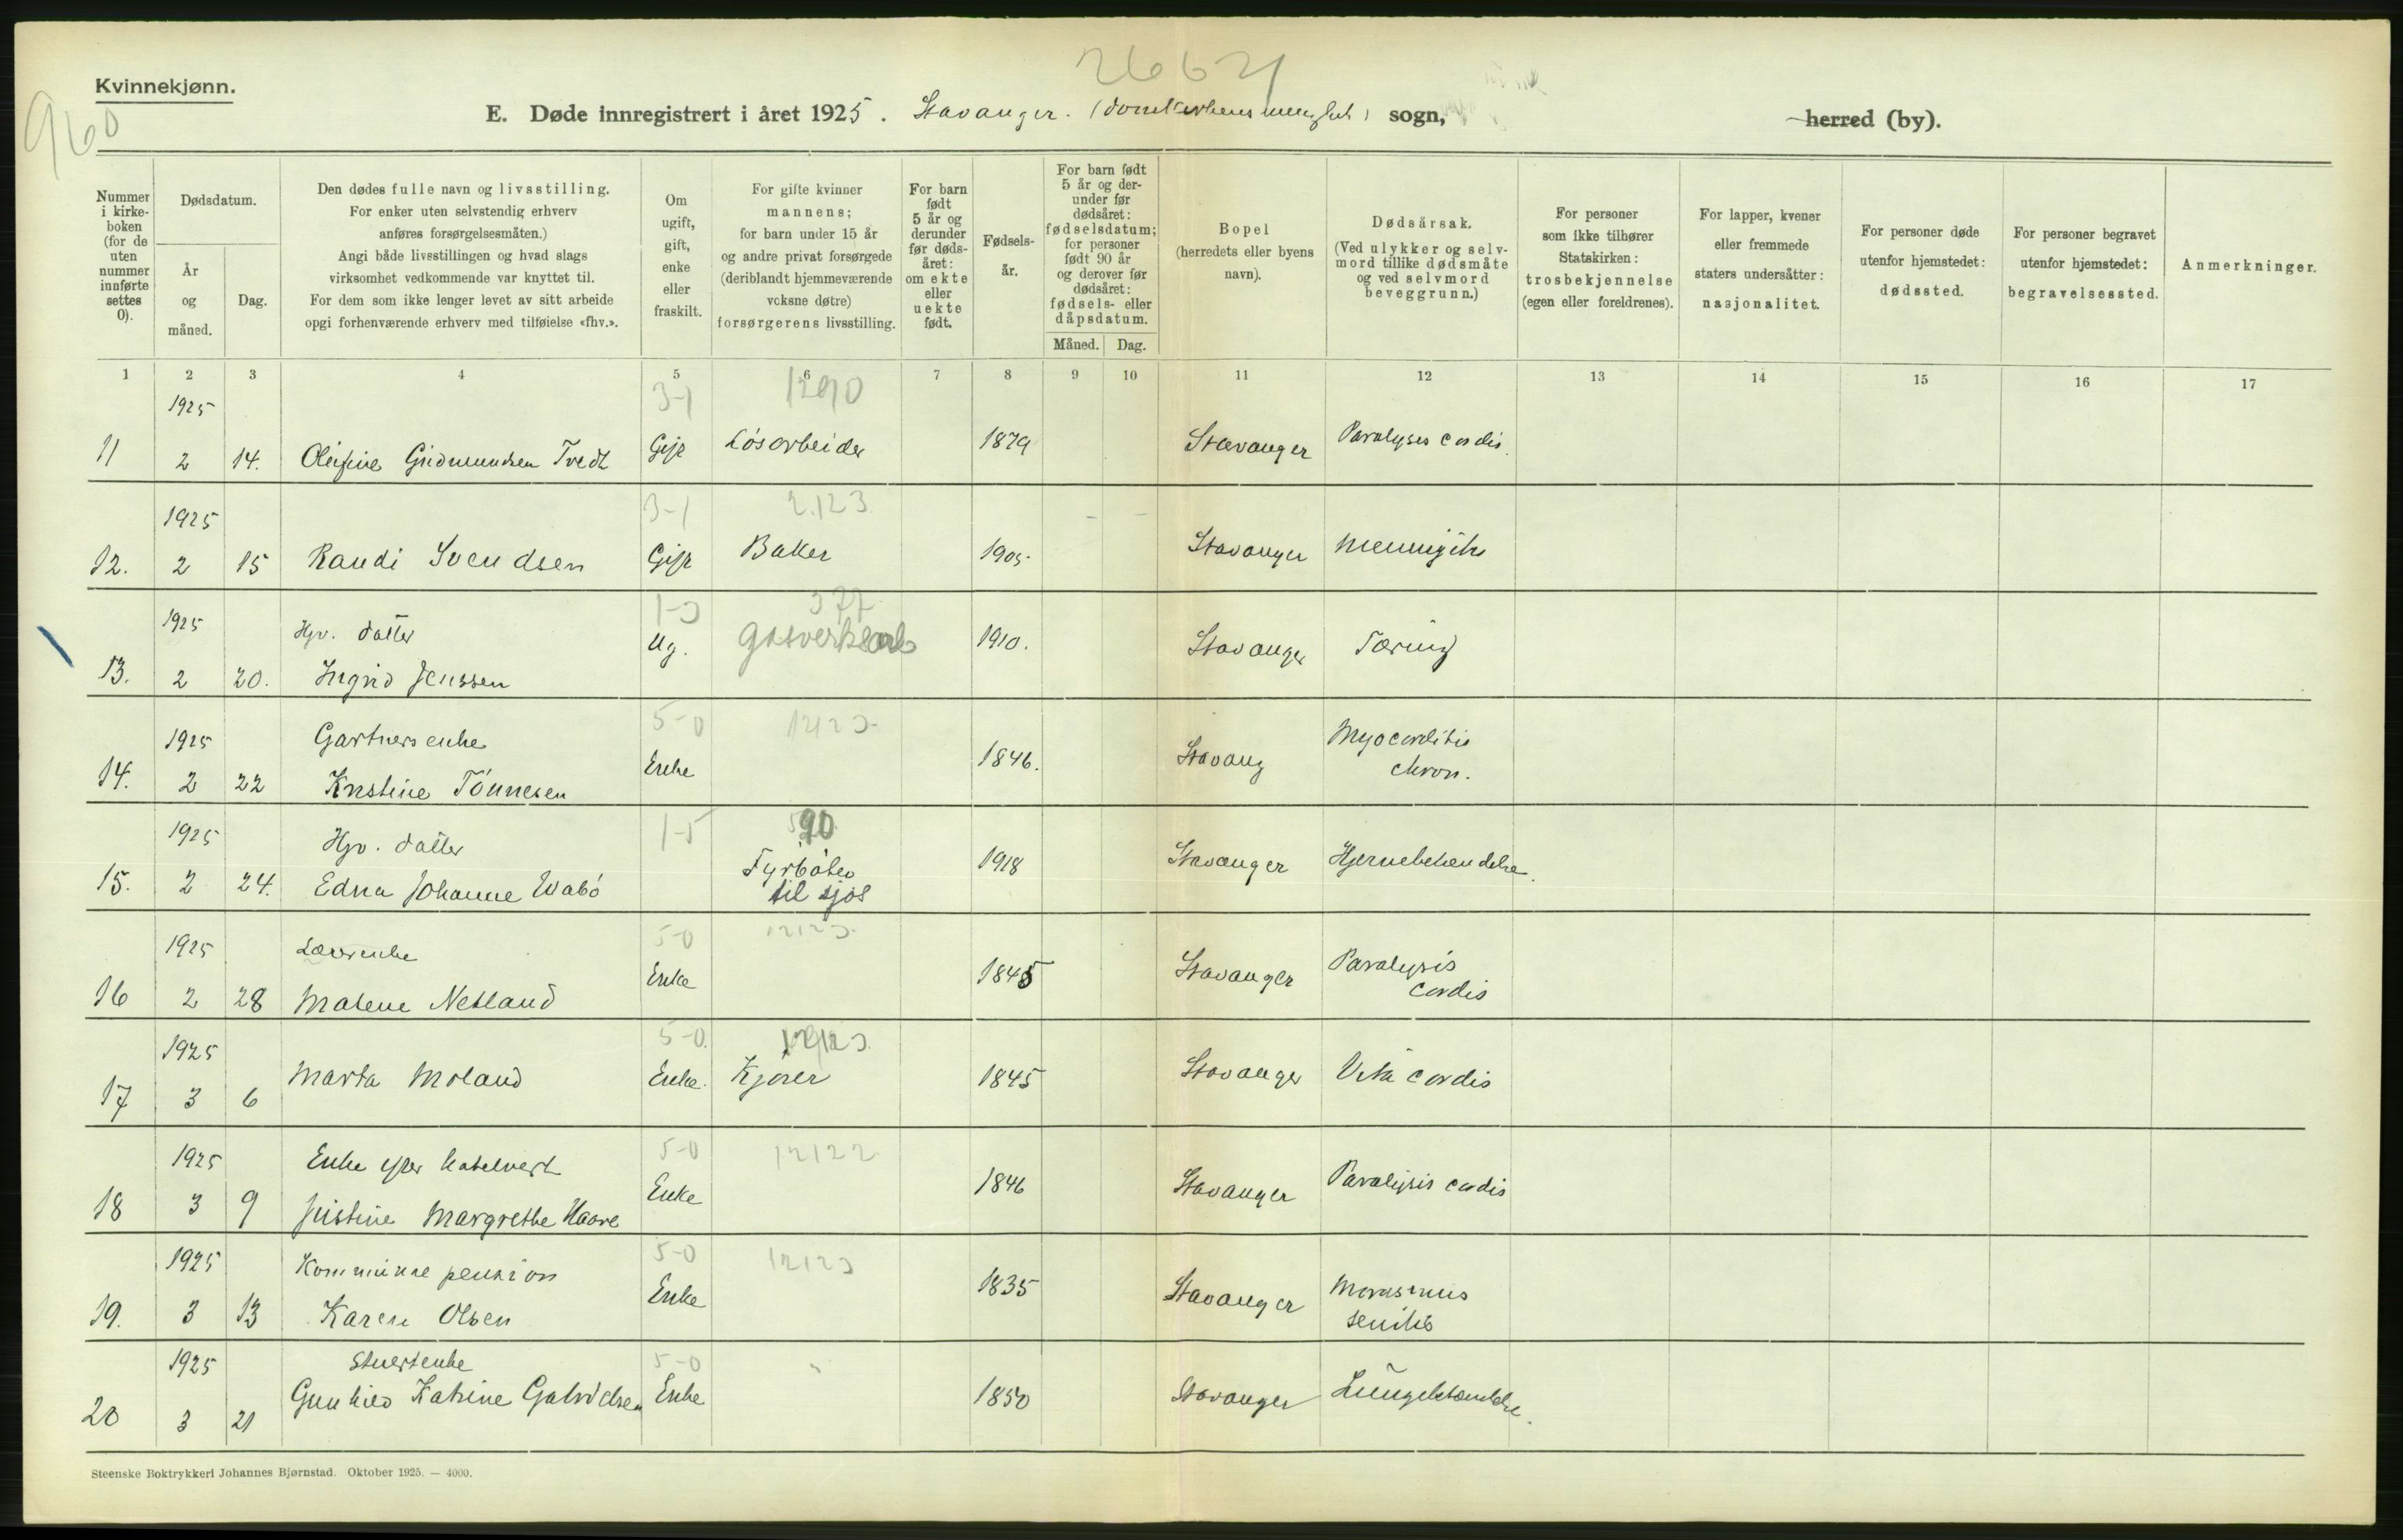 2662
Kvinnekjønn.
960
E. Døde innregistrert i året 1925. Stavanger. (Domkirkens menighet) sogn, herred (by).
Nummer i kirkeboken (for de uten nummer innførte settes 0).
Dødsdatum.
År og måned.
Dag.
Den dødes fulle navn og livsstilling.
For enker uten selvstendig erhverv anføres forsørgelsesmåten.)
Angi både livsstillingen og hvad slags virksomhet vedkommende var knyttet til.
For dem som ikke lenger levet av sitt arbeide opgi forhenværende erhverv med tilføielse «fhv.».
Om ugift, gift, enke eller fraskilt.
For gifte kvinner mannens; for barn under 15 år og andre privat forsørgede (deriblandt hjemmeværende voksne døtre) forsørgerens livsstilling.
For barn født 5 år og derunder før dødsåret: om ekte eller uekte født.
Fødselsår.
For barn født 5 år og derunder før dødsåret: fødselsdatum; for personer født 90 år og derover før dødsåret: fødsels- eller dåpsdatum.
Måned. Dag.
Bopel (herredets eller byens navn).
Dødsårsak.
(Ved ulykker og selvmord tillike dødsmåte og ved selvmord beveggrunn.)
For personer som ikke tilhører Statskirken: trosbekjennelse (egen eller foreldrenes).
For lapper, kvener eller fremmede staters undersåtter: nasjonalitet.
For personer døde utenfor hjemstedet: dødssted.
For personer begravet utenfor hjemstedet: begravelsessted.
Anmerkninger.
1 2 3 4 5 6 7 8 9 10 11 12 13 14 15 16 17
1925 3-1 1290
11 2 14. Olefine Gudmundsen Tvedt Gift Løsarbeider 1879 Stavanger Paralyses cordis.
1925 3-1 2.123
12. 2 15 Randi Svendsen Gift Baker 1905. Stavanger Meningitis
1925 Hjv. datter 1-0 377
13. 2 20. Ingrid Jenssen Ug. Gasverksarb 1910. Stavanger Tæring
1925 Gartnersenke 5-0 12123
14. 2 22 Kristine Tönnesen Enke 1846. Stavang Myocarditis chron.
1925 Hjv. datter 1-5 90
15. 2 24. Edna Johanne Wabö Fyrböter til sjøs 1918 Stavanger Hjernebetændelse.
1925 5-0 12123
16 2 28 Malene Netland Enke 1845 Stavanger Paralysis cordis
1925 5-0. 12123
17 3 6 Marta Moland Enke. Kjører 1845 Stavanger Vitia cordis
1925 Enke efter 5-0 12122
18 3 9 Justine Margrethe Haave Enke 1846 Stavanger Paralysis cordis
1925 Kommunne pension 5-0 12123
19. 3 13 Karen Olsen Enke 1835 Stavanger Marasmus senilis
1925 Stuertenke 5-0 "
20 3 21 Gunhild Katrine Gabrielsen Enke 1850 Stavanger Lungebetændelse.
Steenske Boktrykkeri Johannes Bjørnstad. Oktober 1925. — 4000.